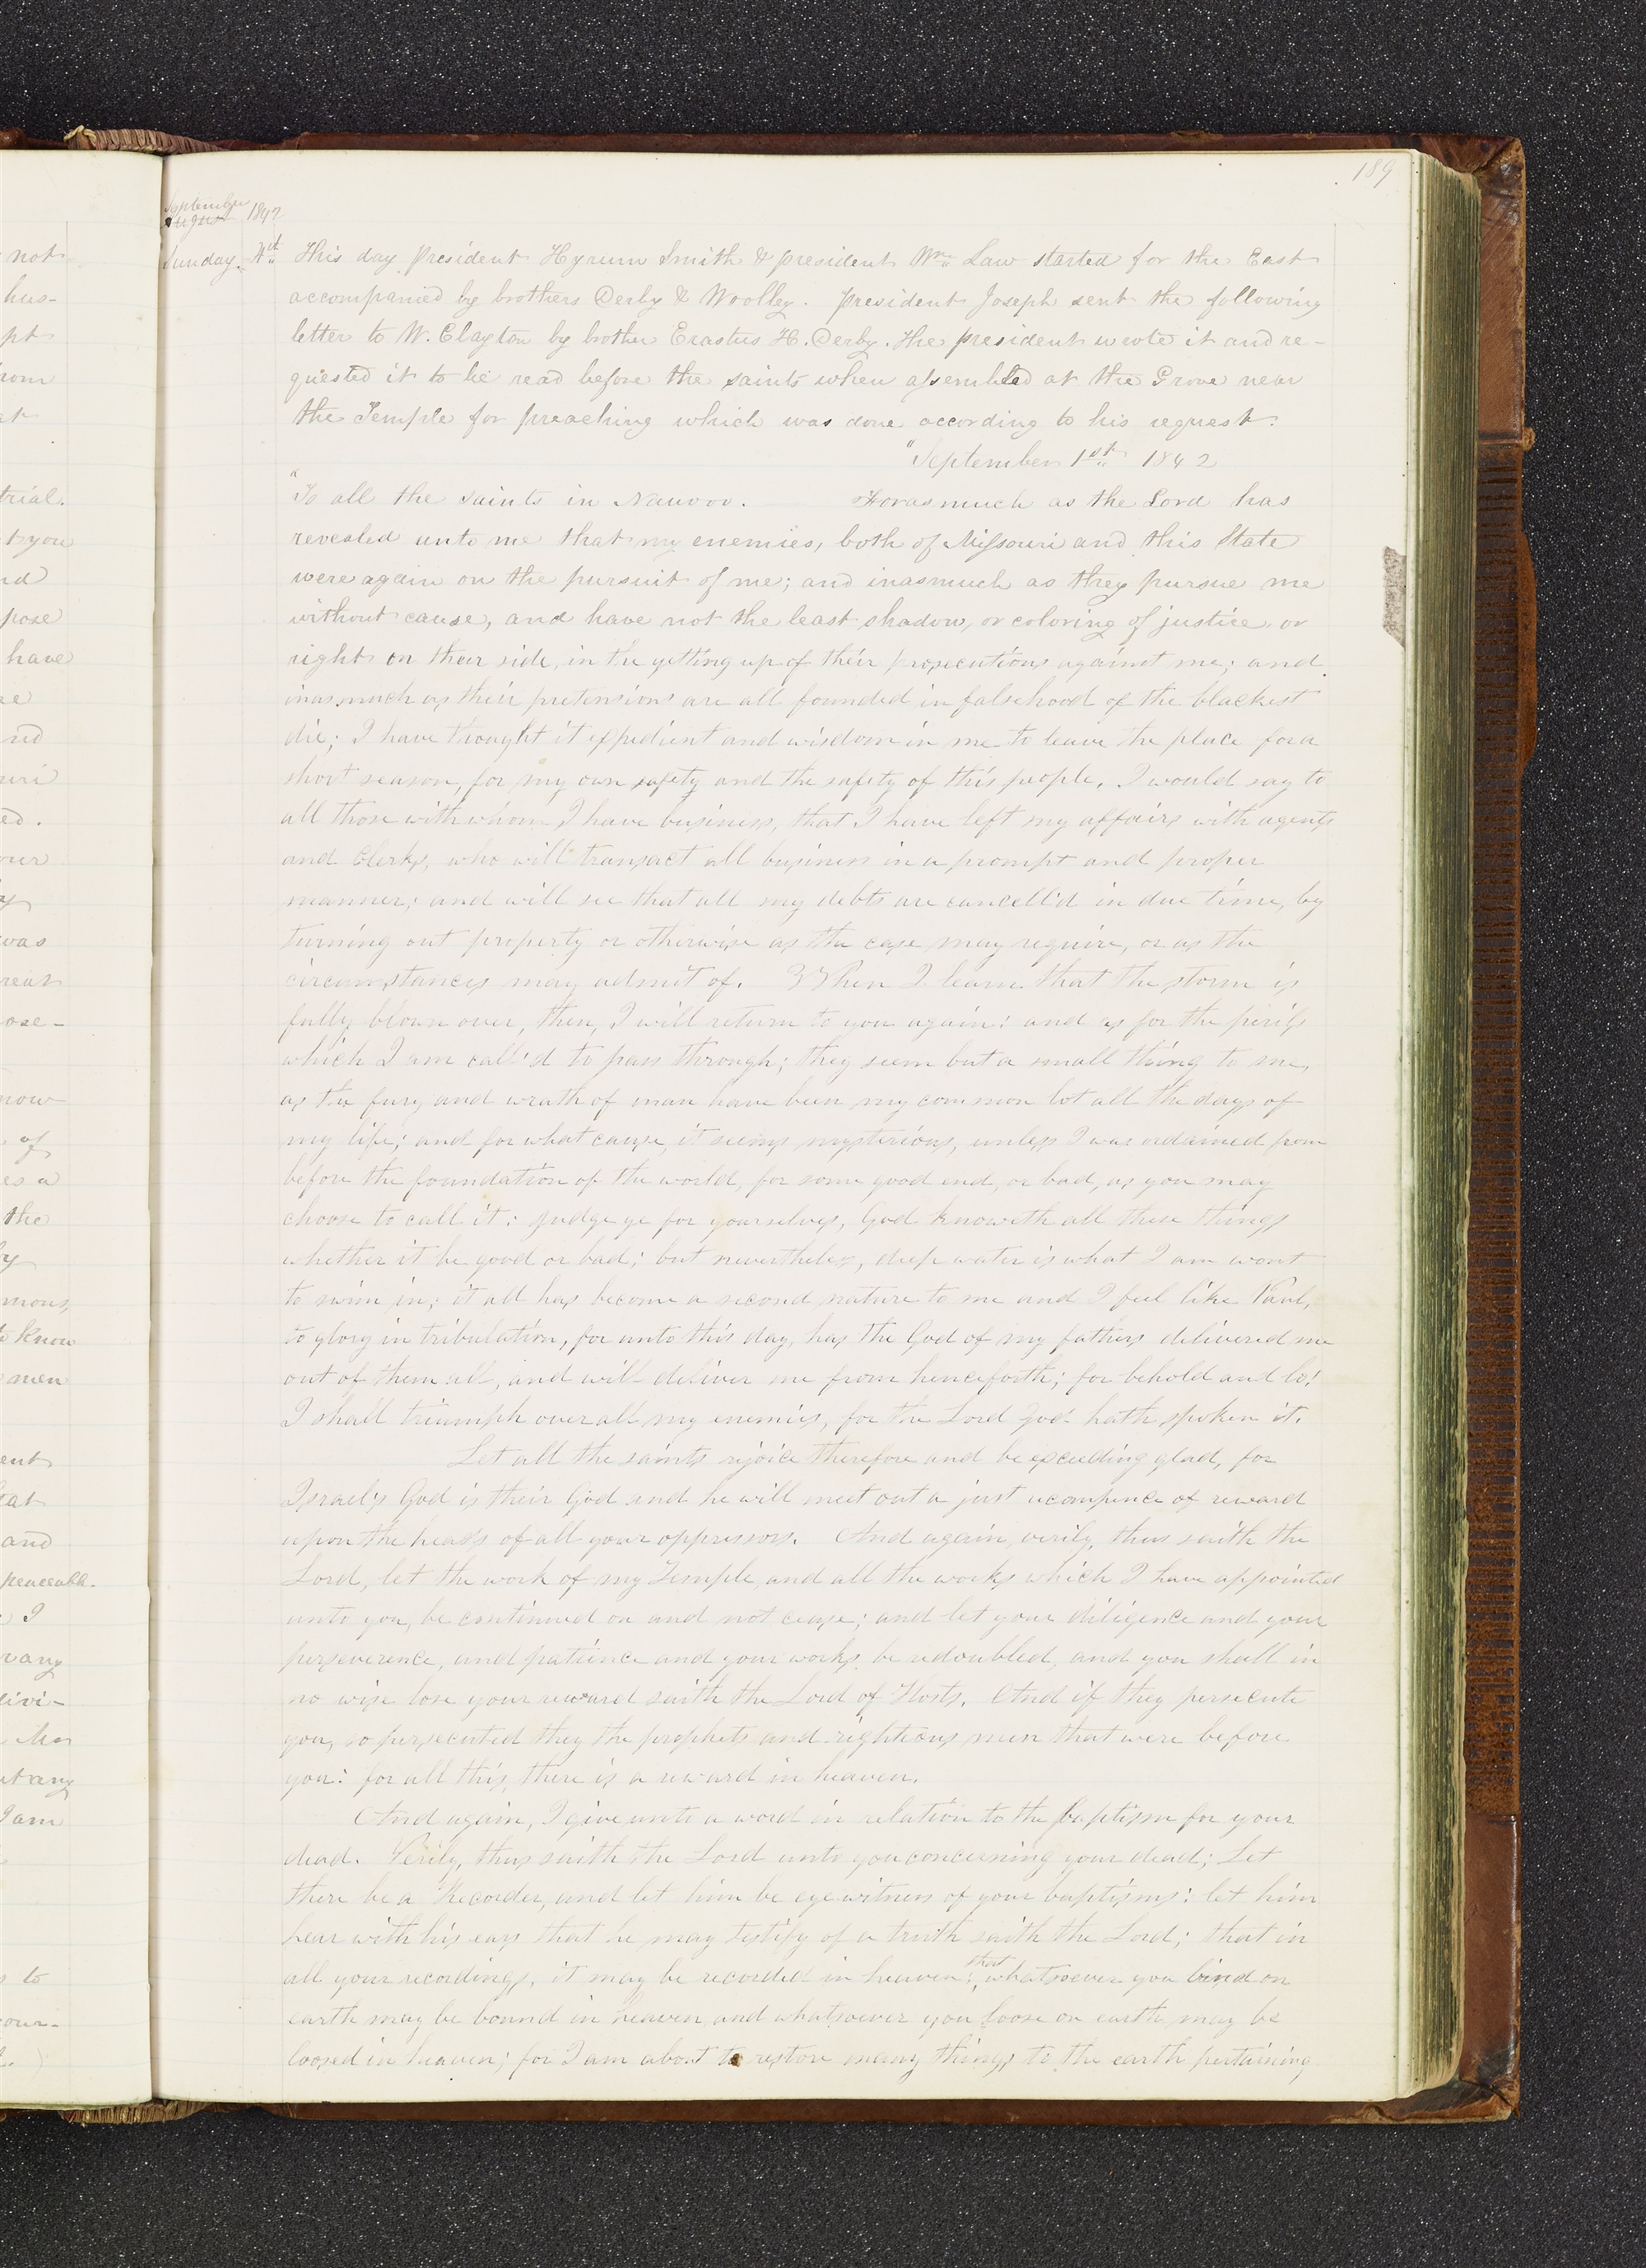 189
September
August 1842
Sunday. 4th This day President Hyrum Smith & president Wm Law started for the East
accompanied by brothers Derby & Woolley. President Joseph sent the following
letter to W. Clayton by brother Erastus H. Derby. The president wrote it and re-
quested it to be read before the saints when assembled at the Grove near
the Temple for preaching which was done according to his request.
"September 1st 1842
"To all the saints in Nauvoo. Forasmuch as the Lord has
revealed unto me that my enemies, both of Missouri and this State
were again on the pursuit of me; and inasmuch as they pursue me
without cause, and have not the least shadow, or coloring of justice, or
right on their side, in the getting up of their prosecutions against me; and
inasmuch as their pretensions are all founded in falsehood of the blackest
die; I have thought it expedient and wisdom in me to leave the place for a
short season, for my own safety and the safety of this people. I would say to
all those with whom I have business, that I have left my affairs with agents
and Clerks, who will transact all business in a prompt and proper
manner; and will see that all my debts are cancell'd in due time, by
turning out property or otherwise as the case may require, or as the
circumstances may admit of. When I learn that the storm is
fully blown over, then, I will return to you again: and as for the perils
which I am call'd to pass through; they seem but a small thing to me,
as the fury and wrath of man have been my common lot all the days of
my life; and for what cause, it seems mysterious, unless I was ordained from
before the foundation of the world, for some good end, or bad, as you may
choose to call it: judge ye for yourselves, God knoweth all these things
whether it be good or bad; but nevertheless, deep water is what I am wont
to swim in; it all has become a second nature to me and I feel like Paul,
to glory in tribulation, for unto this day, has the God of my fathers delivered me
out of them all, and will deliver me from henceforth; for behold and lo!
I shall triumph over all my enemies, for the Lord God hath spoken it.
Let all the saints rejoice therefore and be exceeding glad, for
Israel's God is their God and he will meet out a just recompence of reward
upon the heads of all your oppressors. And again, verily, thus saith the
Lord, let the work of my Temple, and all the works which I have appointed
unto you, be continued on and not cease; and let your diligence and your
perseverence, and patience and your works be redoubled, and you shall in
no wise lose your reward saith the Lord of Hosts. And if they persecute
you, so persecuted they the prophets and righteous men that were before
you: for all this, there is a reward in heaven.
And again, I give unto a word in relation to the baptism for your
dead. Verily, thus saith the Lord unto you concerning your dead; Let
there be a Recorder, and let him be eye witness of your baptisms: let him
hear with his ears that he may testify of a truth saith the Lord; that in
all your recordings, it may be recorded in heaven; that whatsoever you bind on
earth may be bound in heaven and whatsoever you loose on earth may be
loosed in heaven; for I am about to restore many things to the earth pertaining